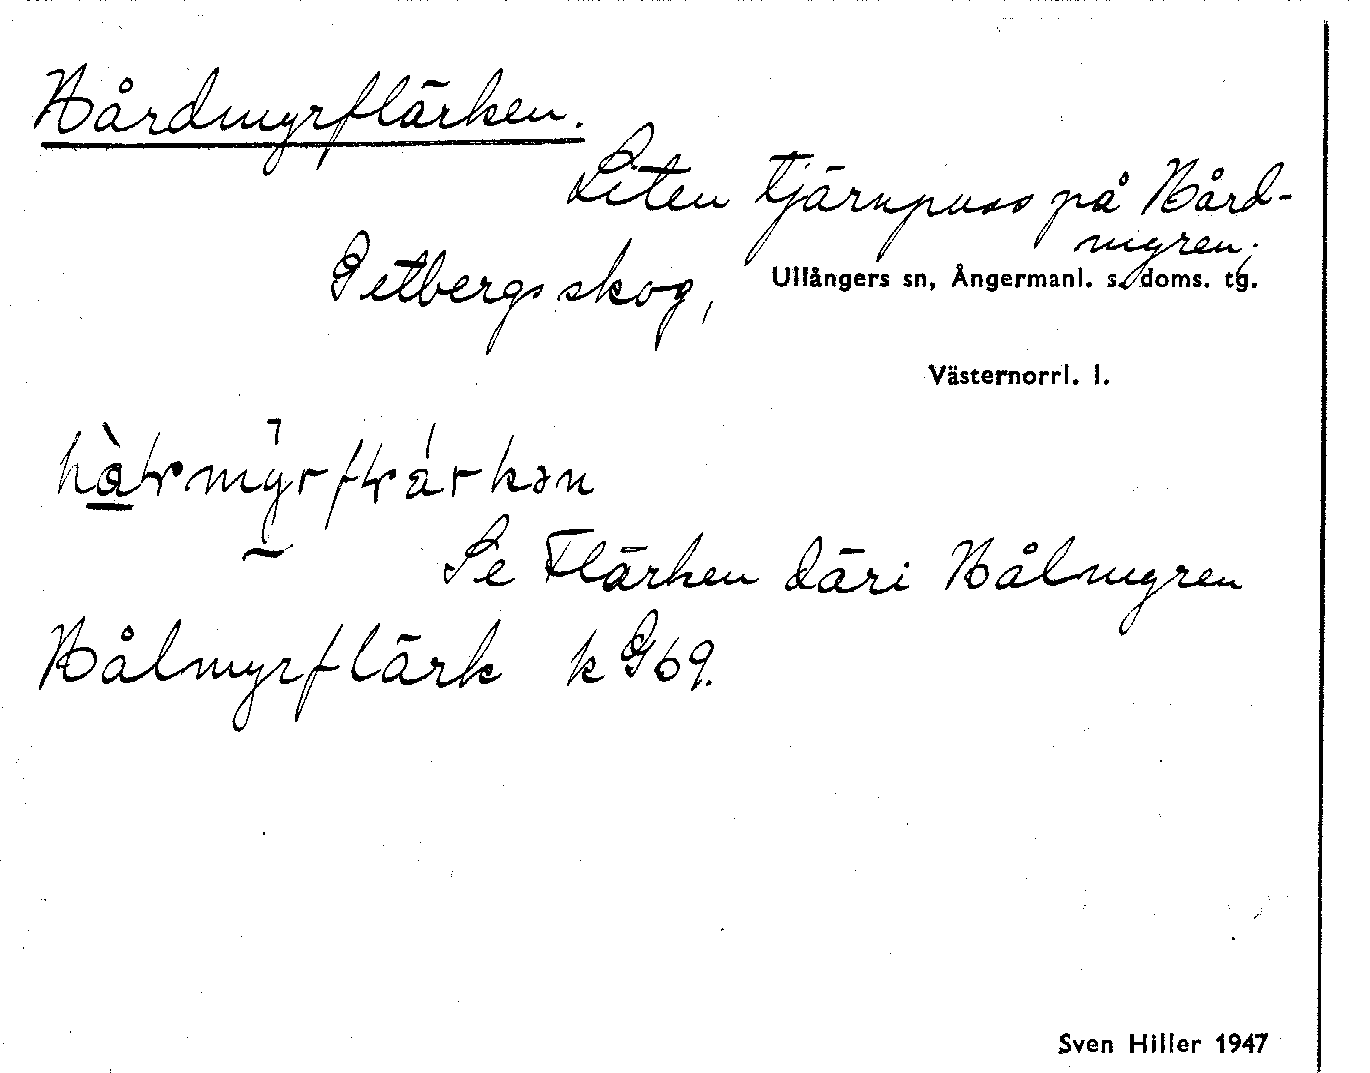 Hårdmyrflärken.
Liten tjärnpuss på Hård-
myren,
Getbergs skog, Ullångers sn, Ångermanl. s. doms. tg.
Västernorrl. l.
Se Flärken däri Hålmyren
Hålmyrflärk k G69.
Sven Hiller 1947